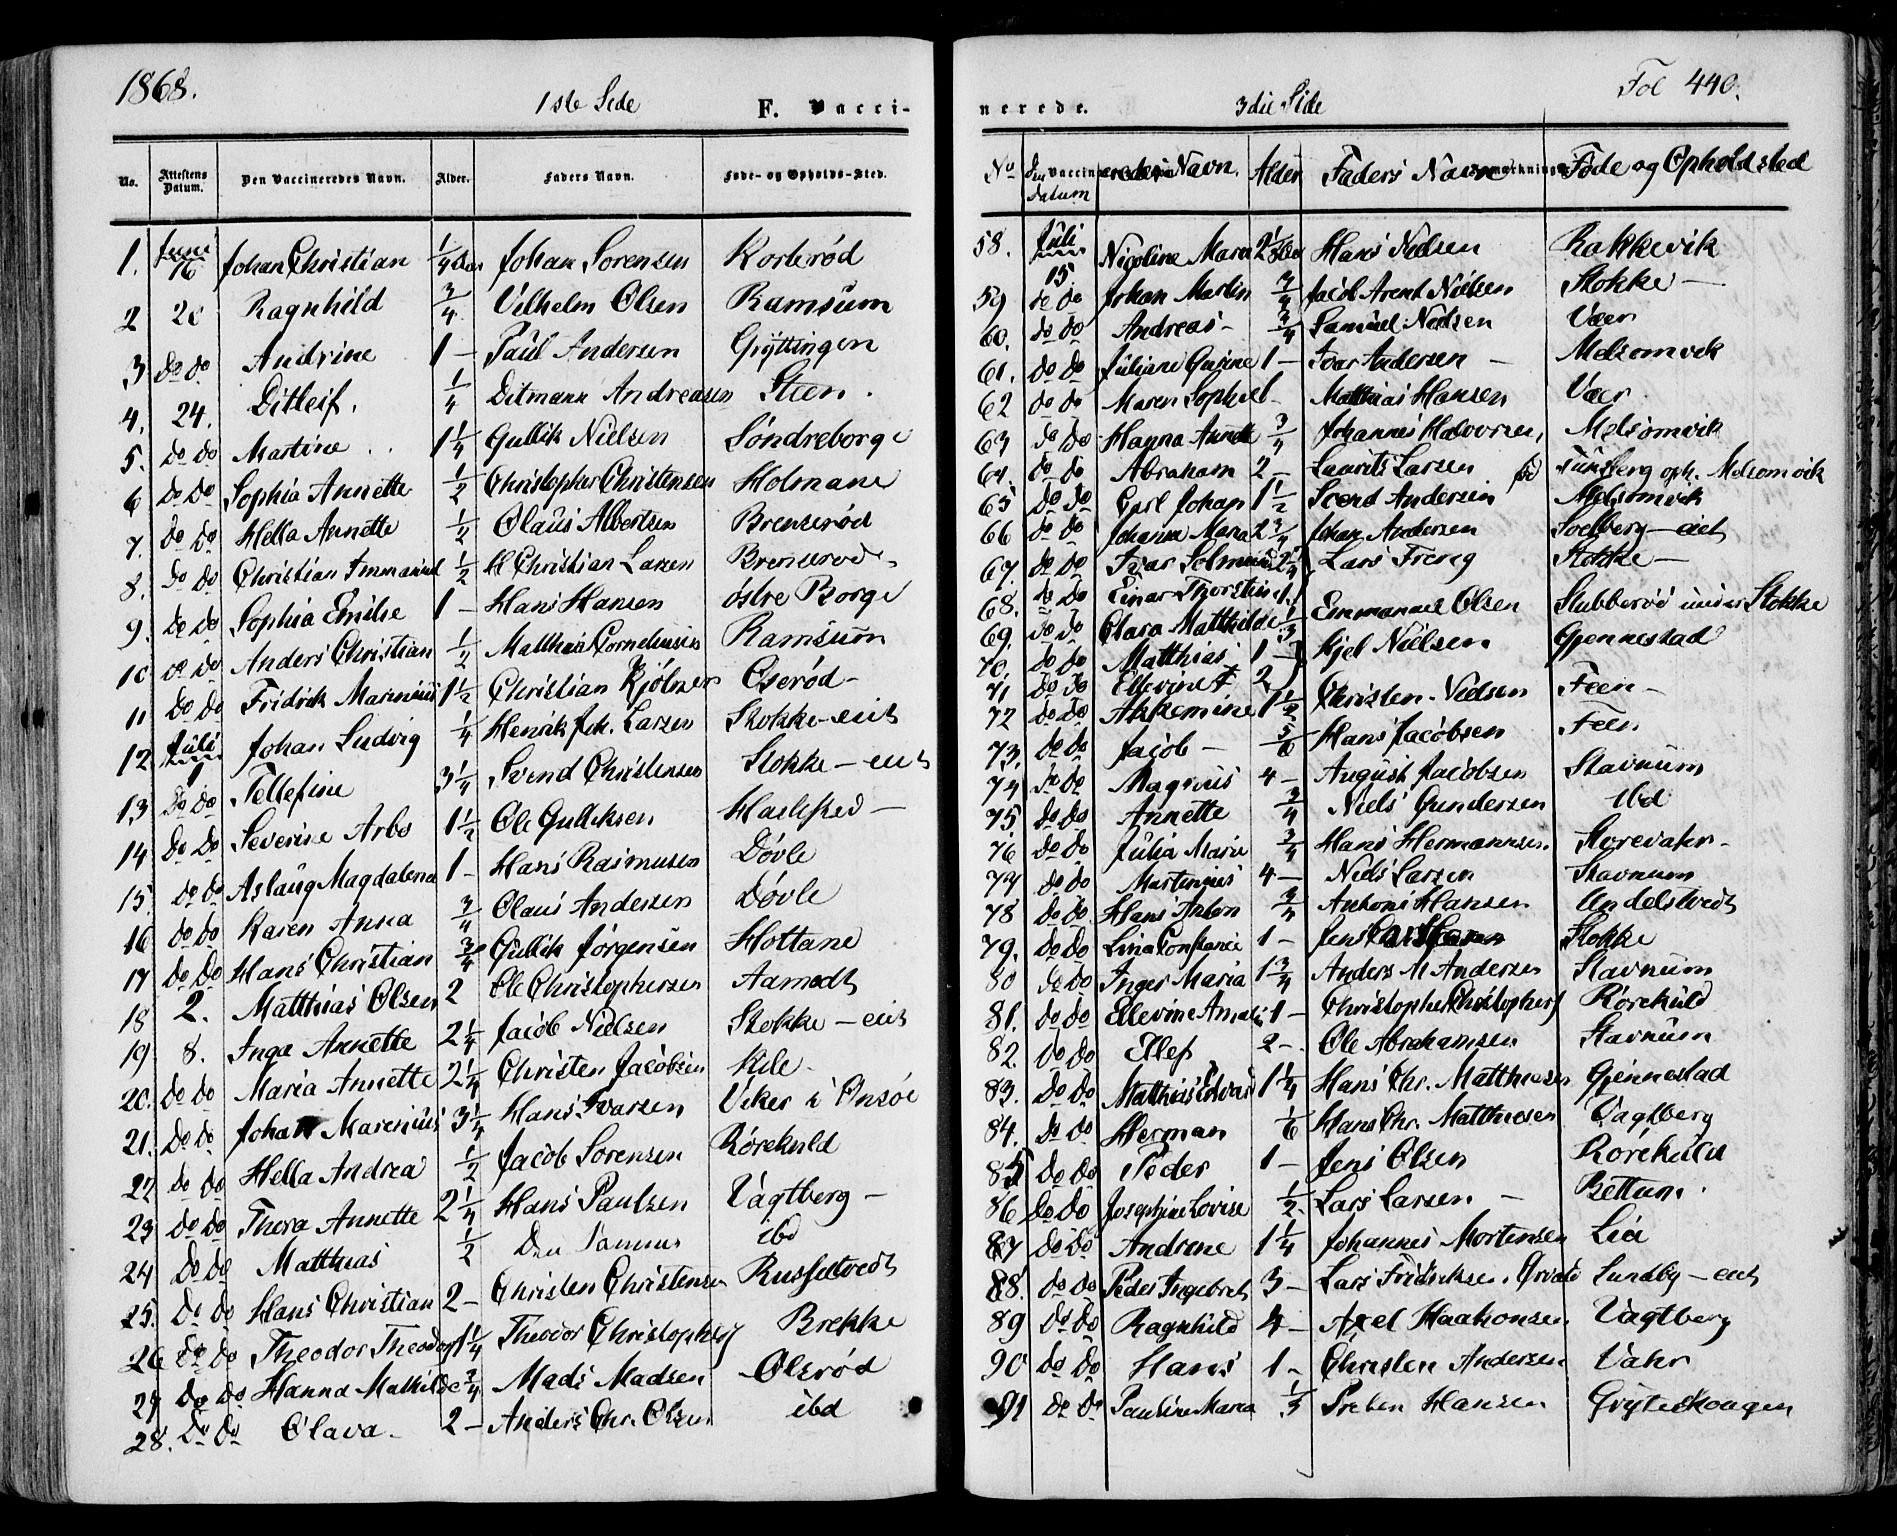 1868.
1ste Side
F. Vacci-
No. Attestens Datum. Den Vaccineredes Navn. Alder. Faders Navn. Føde- og Opholds-Sted.
1. Juni 16 Johan Christian 1/4 Johan Sorensen Korterød
2 20 Ragnhild 3/4 Vilhelm Olsen Ramsum
3 do do Andrine 1 - Paul Andersen Gryttingen
4. 24. Ditleif. 1/4 Ditmann Andreasen Steen.
5. do do Martine 1 1/4 Gullik Nielsen Söndreborge
6 do do Sophia Annette 1/2 Christopher Christensen Holmane
7. do do Hella Annette 1/2 Olaus Albertsen Brenserød
8. do do Christian Immanuel 1/2 Christian Larsen Brenserød
9. do do Sophia Emilie 1 - Hans Hansen østre Borge
10 do do Anders Christian 1/2 Matthias Corneliussen Ramsum
11 do do Fridrik Marinius 1 1/2 Christian Kjölner Oserød-
12 Juli 1 Johan Ludvig 1/4 Henrik Joh. Larsen Stokke-eiet
13 do do Tellefine 3 1/4 Svend Christensen Stokke - eiet
14 do do Severine Arbo 1 1/2 Ole Gulliksen
15. do do Aslaug Magdalena 1 - Hans Rasmusen Døvle
16 do do Karen Anna 3/4 Olaus Andersen Døvle
17 do do Hans Christian 3/4 Gullik Jørgensen Hottane
18 2. Matthias Olsen 2 Ole Christophersen Aamodt
19 8. Inga Annette 2 1/4 Jacob Nielsen Stokke - eiet
20. do do Maria Annette 2 1/4 Christen Jacobsen Kile
21. do do Johan Marenius 3 1/4 Hans Ivarsen Viker i Onsöe
22 do do Hella Andrea 1/2 Jacob Sorensen Rörekuld
23 do do Thora Annette 2 1/4 Hans Paulsen Vagtberg -
24 do do Matthias 1/2 Den Samme ibd
25. do do Hans Christian 2 - Christen Christensen Russeltvedt
26 do do Theodor Theodors 1 1/4 Theodor Christophers Brekke
27 do do Hanna Mathilde 3/4 Mads Madsen Olsrød
28. do do Olava - 2 - Anders Chr. Olsen ibd
nerede. 3die Side Fol 440.
No Datum Navn. Alder Faders Navn Føde og Opholdsted
58. Juli 15 Nicoline Maria 2 1/2 Hans Nielsen Rakkevik
59 do do Johan Martin 3/4 Jacob Arent Nielsen Stokke -
60. do do Andreas - 3/4 Samuel Nielsen Vær
61. do do Juliane Gusine 1 - Ivar Andersen - Melsomvik
62 do do Maren Sophie 1 - Matthias Hansen Vær
63 do do Hanna Annette 3/4 Johannes Halvorsen, Melsomvik
64. do do Abraham 2 - Laurits Larsen fød Tunsberg oph. Melsomvik
65 do do Carl Johan 1 1/2 Svend Andersen Melsomvik
66 do do Johanna Maria 2 3/4 Johan Andersen Soelberg - eiet
67. do do Ivar Selmer 2 1/4 Lars Freng Stokke -
68. do do Einar Thorstein
69. do do Clara Matthilde 1/3 Emmanuel Olsen Stubberød under Stokke
70. do do Matthias 1 - Kjel Nielsen Gjennestad
71 do do Ellevine 2
72 do do Akkemine 1 1/2 Christen Nielsen Feen -
73. do do Jacob - 5/6 Hans Jacobsen Feen
74 do do Magnus 4 - August Jacobsen Stavnum
75 do do Annette 3/4 Niels Gundersen ibd
76 do do Julia Marie 3/4 Hans Hermannsen. Storevahr -
77 do do Martinus 4 - Niels Larsen Stavnum
78 do do Hans Anton 3/4 Antoni Hansen Undelstvedt
79. do do Lina Constance 1 - Jens Stokke
80 do do Inger Maria 1 3/4 Anders M Andersen Stavnum
81. do do Ellevine Amalie 1 - Christopher Christophers Rörekuld
82. do do Ellef 2 - Ole Abrahamsen Stavnum
83. do do Matthias Edvard 1 1/4 Hans Chr. Matthiesen Gjennestad
84. do do Herman 1/6 Hans Chr. Matthiesen Vagtberg
85 do do Peder 1 - Jens Olsen Rörekuld
86 do do Josephine Lovise 1/2 Lars Larsen - Bettum.
87 do do Andrine 1 1/4 Johannes Mortensen Lia
88. do do Peder Ingebret 3 - Lars Fridriksen. Lundby - eiet
89 do do Ragnhild 4 - Axel Haakonsen Vagtberg
90 do do Hans 1 - Christen Andersen Vahr
91 do do Pauline Maria 1/3 Preben Hansen Gryteskougen